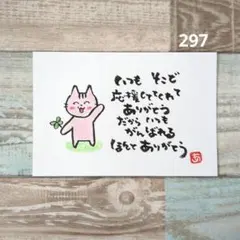 297
いつも そこで
応援してくれて
ありがとう
だから いつも
がんばれる
ほんとう ありがとう
あ